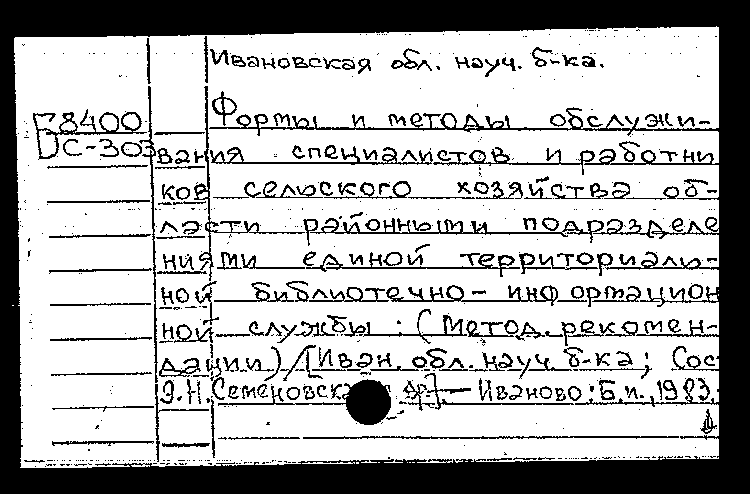 Ивановская обл. науч. б-ка.
Б8400
С-303
Формы и методы обслужи-
вания специалистов и работни
ков сельского хозяйства об-
ласти районными подразделе
ниями единой территориаль-
ной библиотечно-информацион
ной службы : (Метод. рекомен-
дации) / [Иван. обл. науч. б-ка; Сос
Э.Н. Семеновска др.]. — Иваново: Б.и., 1983.